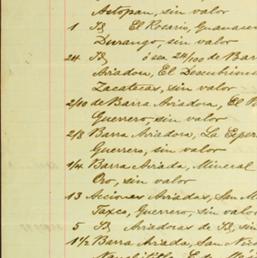 Actopan, sin valor
1 Id El Rosario, Guanaceví
Durango, sin valor
24 Id ó sea 24/100 de Barra
Aviadora, El Descubrimi
Zacatecas, sin valor
2/10 de Barra Aviadora, El
Guerrero, sin valor
2/3 Barra Aviadora, La Esper
Guerrero, sin valor
1/4 Barra Aviada, Mineral
Oro, sin valor
13 Acciones Aviadas, San M
Taxco, Guerrero, sin valor
5 Id Aviadoras de Id, sin
1 1/2 Barra Aviada, San Nic